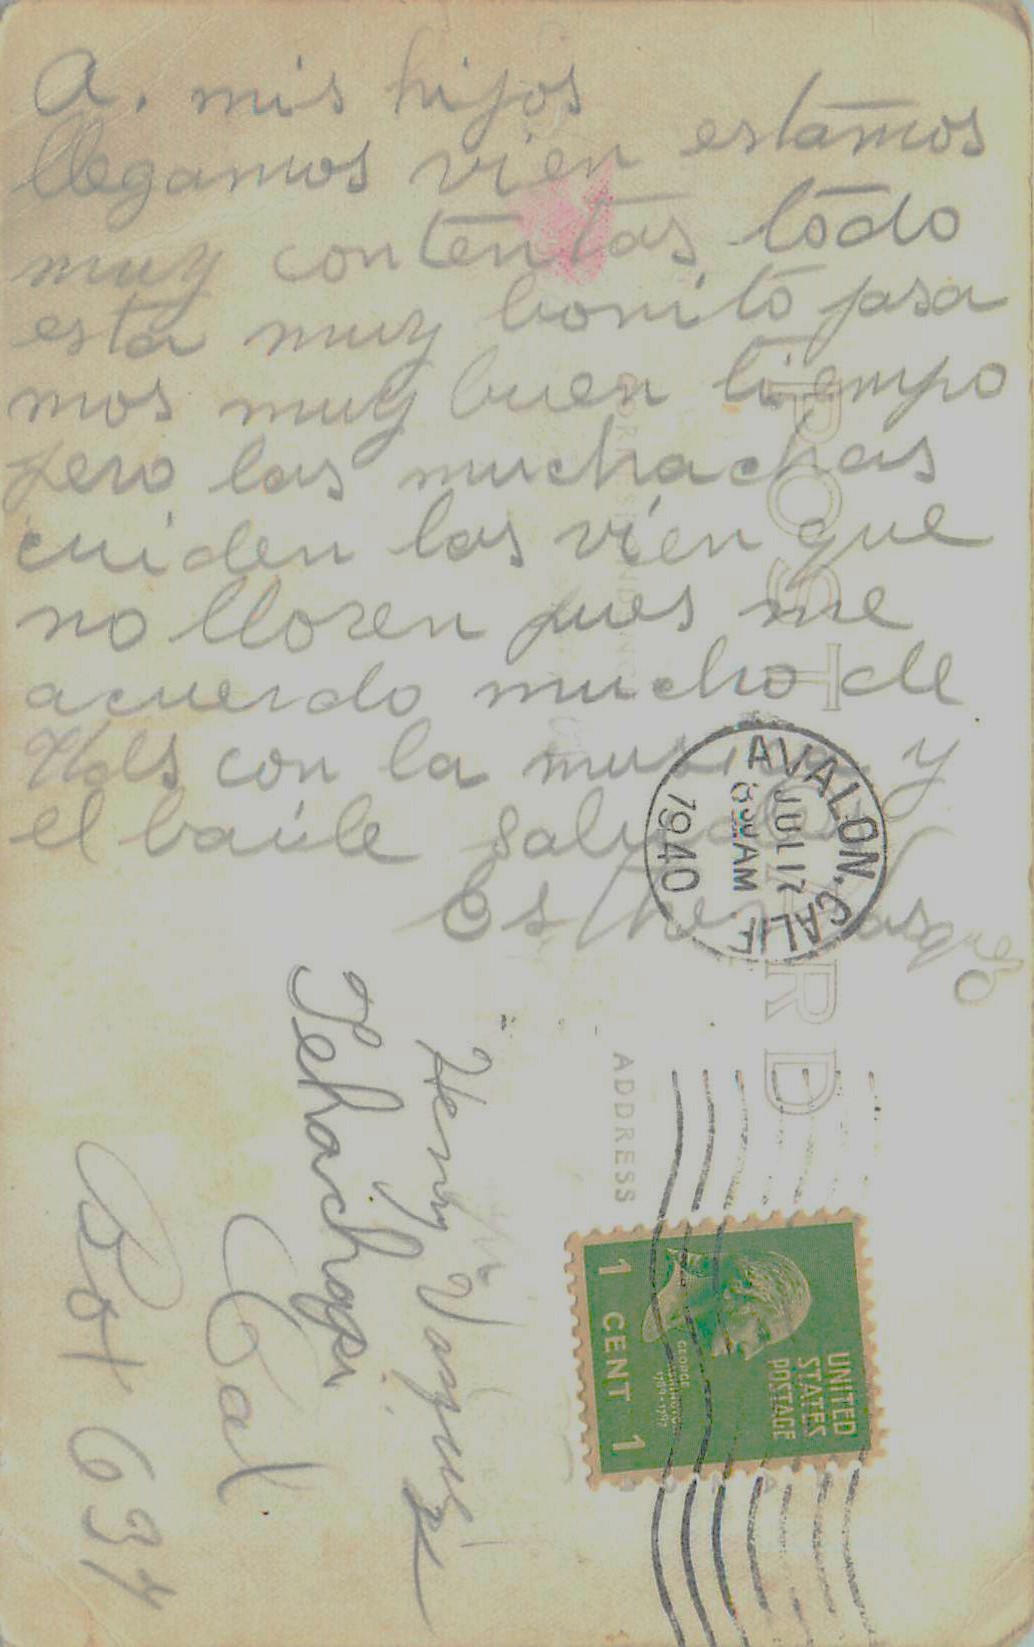 A. mis hijos
llegamos vien estamos
muy contentas todo
esta muy bonito pasa
mos muy buen tiempo
pero las muchachas
cuiden las vien que
no lloren pues me
acuerdo mucho de
Uds con la musica y
el baúle saludes
Esther Vasquez
POST CARD
CORRESPONDENCE
ADDRESS
AVALON, CALIF
JUL 17
8 30 AM
1940
Henry Vasquez
Tehachapi
Cal
Box 637
UNITED
STATES
POSTAGE
GEORGE
WASHINGTON
1789-1797
1 CENT 1